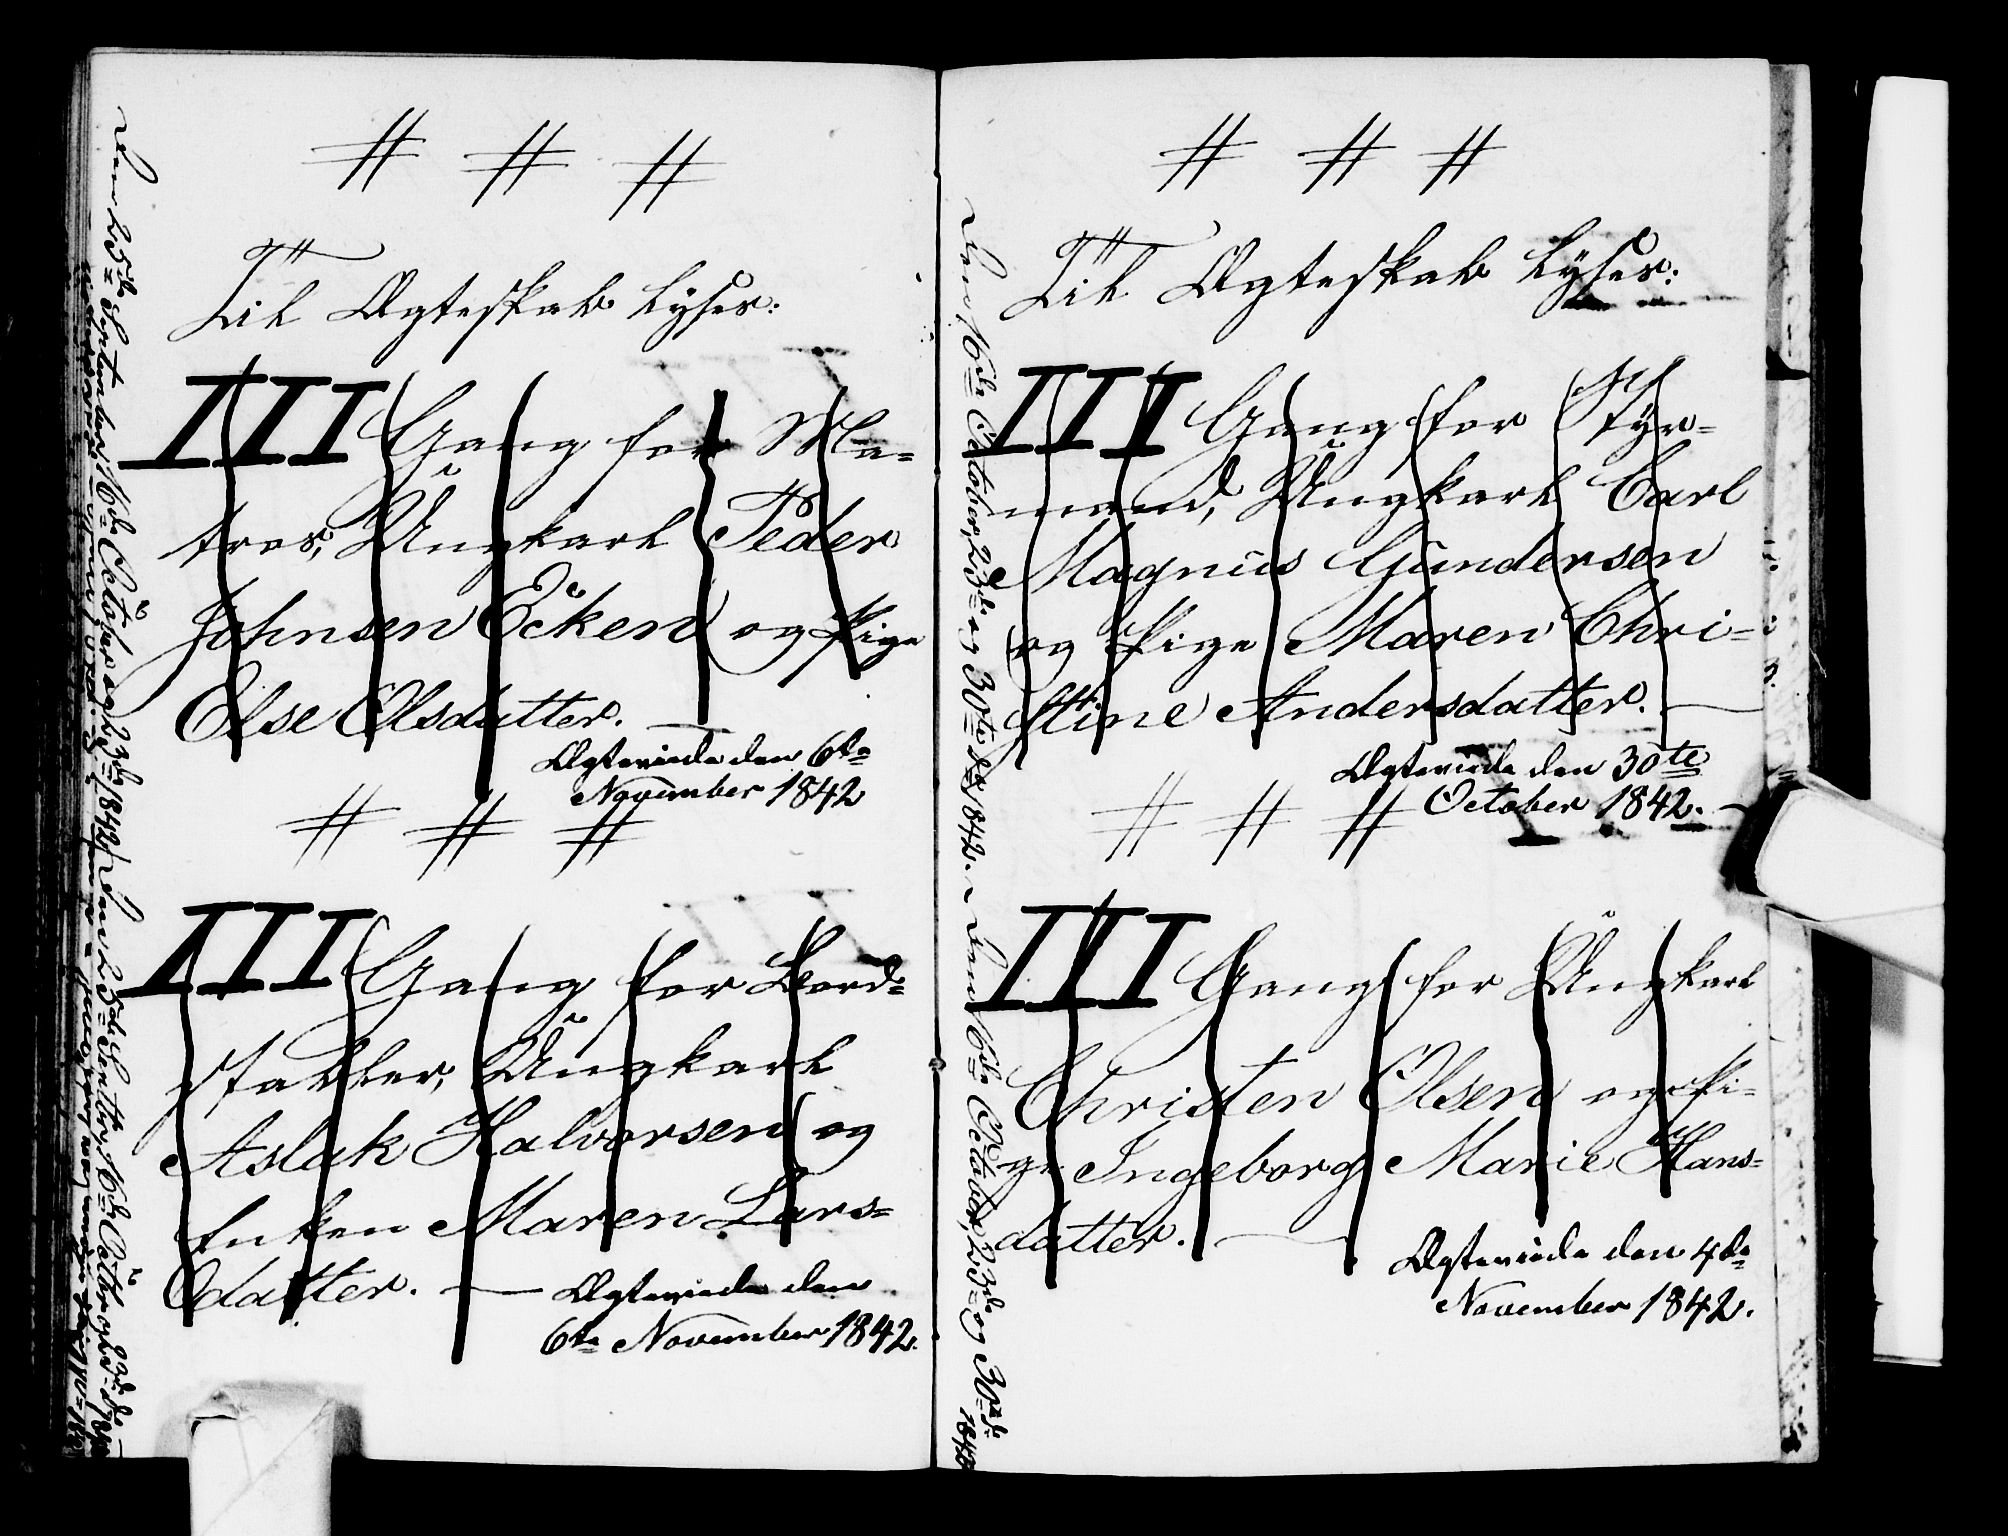 # # #
Til Ægteskab lyses:
III Gang for Ma-
tros, Ungkarl Peder
Johnsen Ecken og Pige
Else Olsdatter. —
Ægteviede den 6te
November 1842
# # #
III Gang for Bord-
stabler, Ungkarl
Aslak Halvorsen og
Enken Maren Lars-
datter. — Ægteviede den
6te November 1842.
Den 25de September, 16de October og 23de 1842
Den 25de Septbr, 16de Octbr og 23de
# # #
Til Ægteskab lyses:
III Gang for Styr-
mand, Ungkarl Carl
Magnus Gundersen
og Pige Maren Chri-
stine Andersdatter. —
Ægteviede den 30te
October 1842. —
# # #
III Gang for Ungkarl
Christen Olsen og Pi-
ge Ingeborg Marie Hans-
datter. —
Ægteviede den 4de
November 1842.
Den 16de October, 23de og 30te 1842. Den 16de October, 23de og 30te
1842